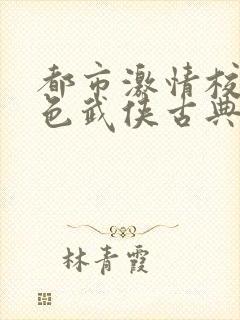 都市激情校
色武侠古典
林青霞